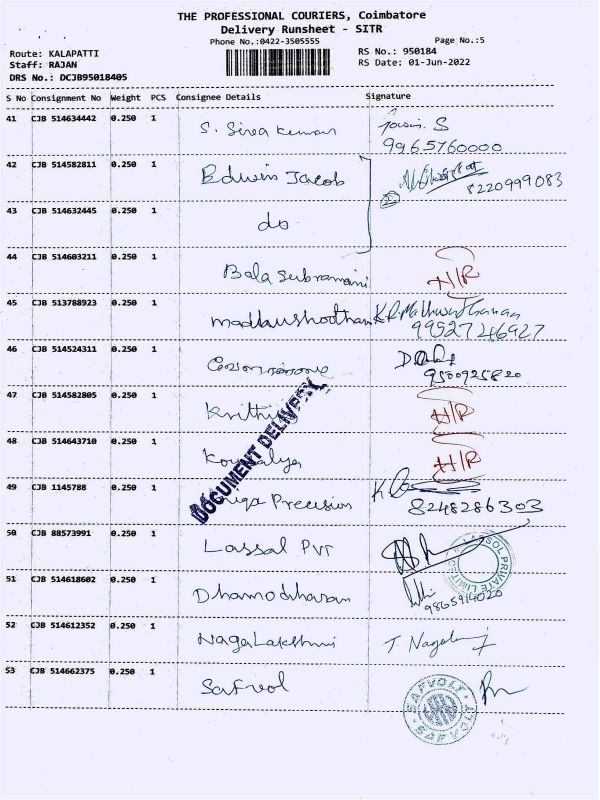 THE PROFESSIONAL COURIERS, Coimbatore
Delivery Runsheet - SITR
Phone No.:0422-3505555
Page No.:5
Route: KALAPATTI
Staff: RAJAN
DRS No.: DCJB95018405
RS No.: 950184
RS Date: 01-Jun-2022
S No Consignment No Weight PCS Consignee Details Signature
41 CJB 514634442 0.250 1 S. Siva Kumar
9965760000
42 CJB 514582811 0.250 1 Edwin Jacob
8220999083
43 CJB 514632445 0.250 1 do
44 CJB 514603211 0.250 1 Bala Subramani H/R
45 CJB 513788923 0.250 1 madhushoothan K.R. Mathusuthanan
9952746927
46 CJB 514524311 0.250 1
9500925820
47 CJB 514582805 0.250 1 Krithi H/R
48 CJB 514643710 0.250 1 Kousalya H/R
DOCUMENT DELIVERY
49 CJB 1145788 0.250 1 Precision
8248286303
50 CJB 88573991 0.250 1 Lassal Pvt
SOL PRIVATE LIMITED
51 CJB 514618602 0.250 1 Dhamodharan
9865914020
52 CJB 514612352 0.250 1 Naga Lakshmi
53 CJB 514662375 0.250 1 Safvol
SAFVOLT
SAFVOLT